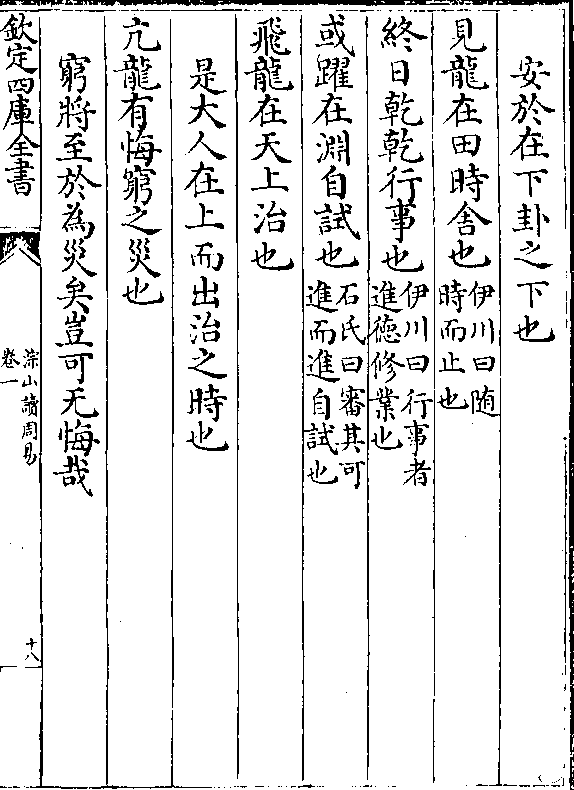 安於在下卦之下也
見龍在田時舍也伊川曰随時而止也
終日乾乾行事也伊川曰行事者進德修業也
或躍在淵自試也石氏曰審其可進而進自試也
飛龍在天上治也
是大人在上而出治之時也
亢龍有悔窮之災也
窮將至於為災矣豈可无悔哉
欽定四庫全書
淙山讀周易
卷一
十八